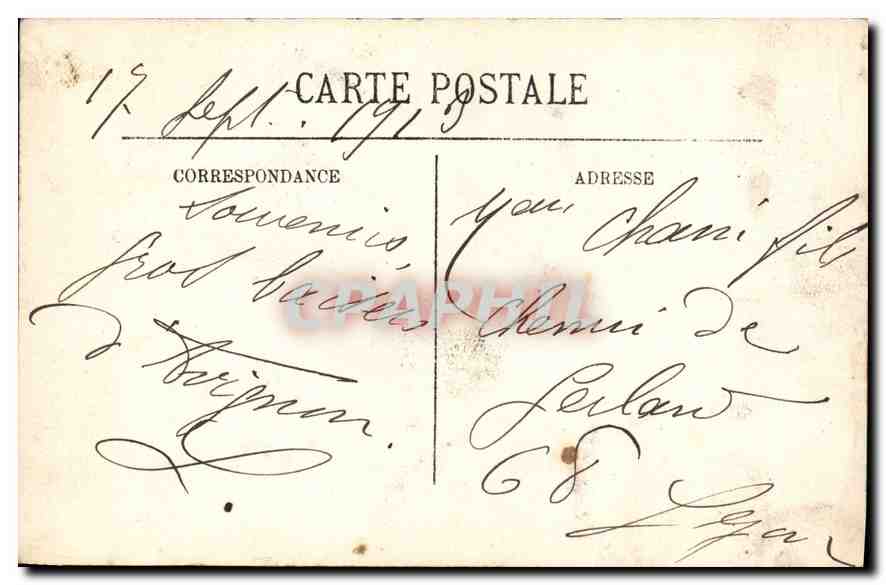 CARTE POSTALE
17 Sept. 1913
CORRESPONDANCE
Souvenirs
gros baisers
d'Avignon.
ADRESSE
fils
chemin de
Gerland
68
Lyon
CPAPHIL